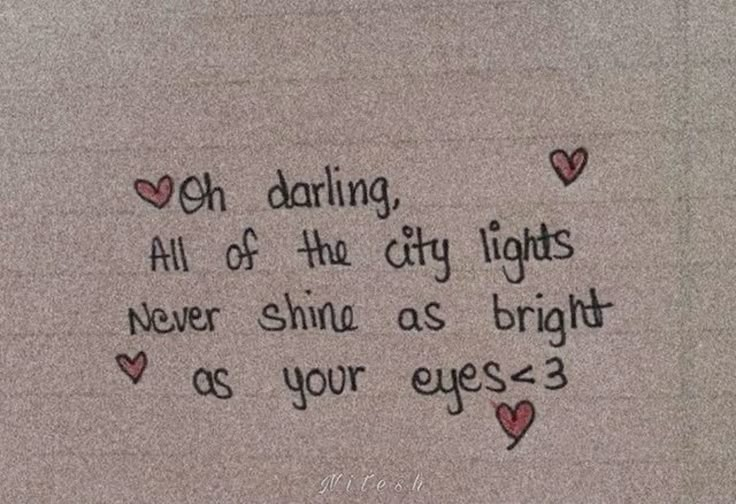 Oh darling,
All of the city lights
Never shine as bright
as your eyes<3
Nitesh